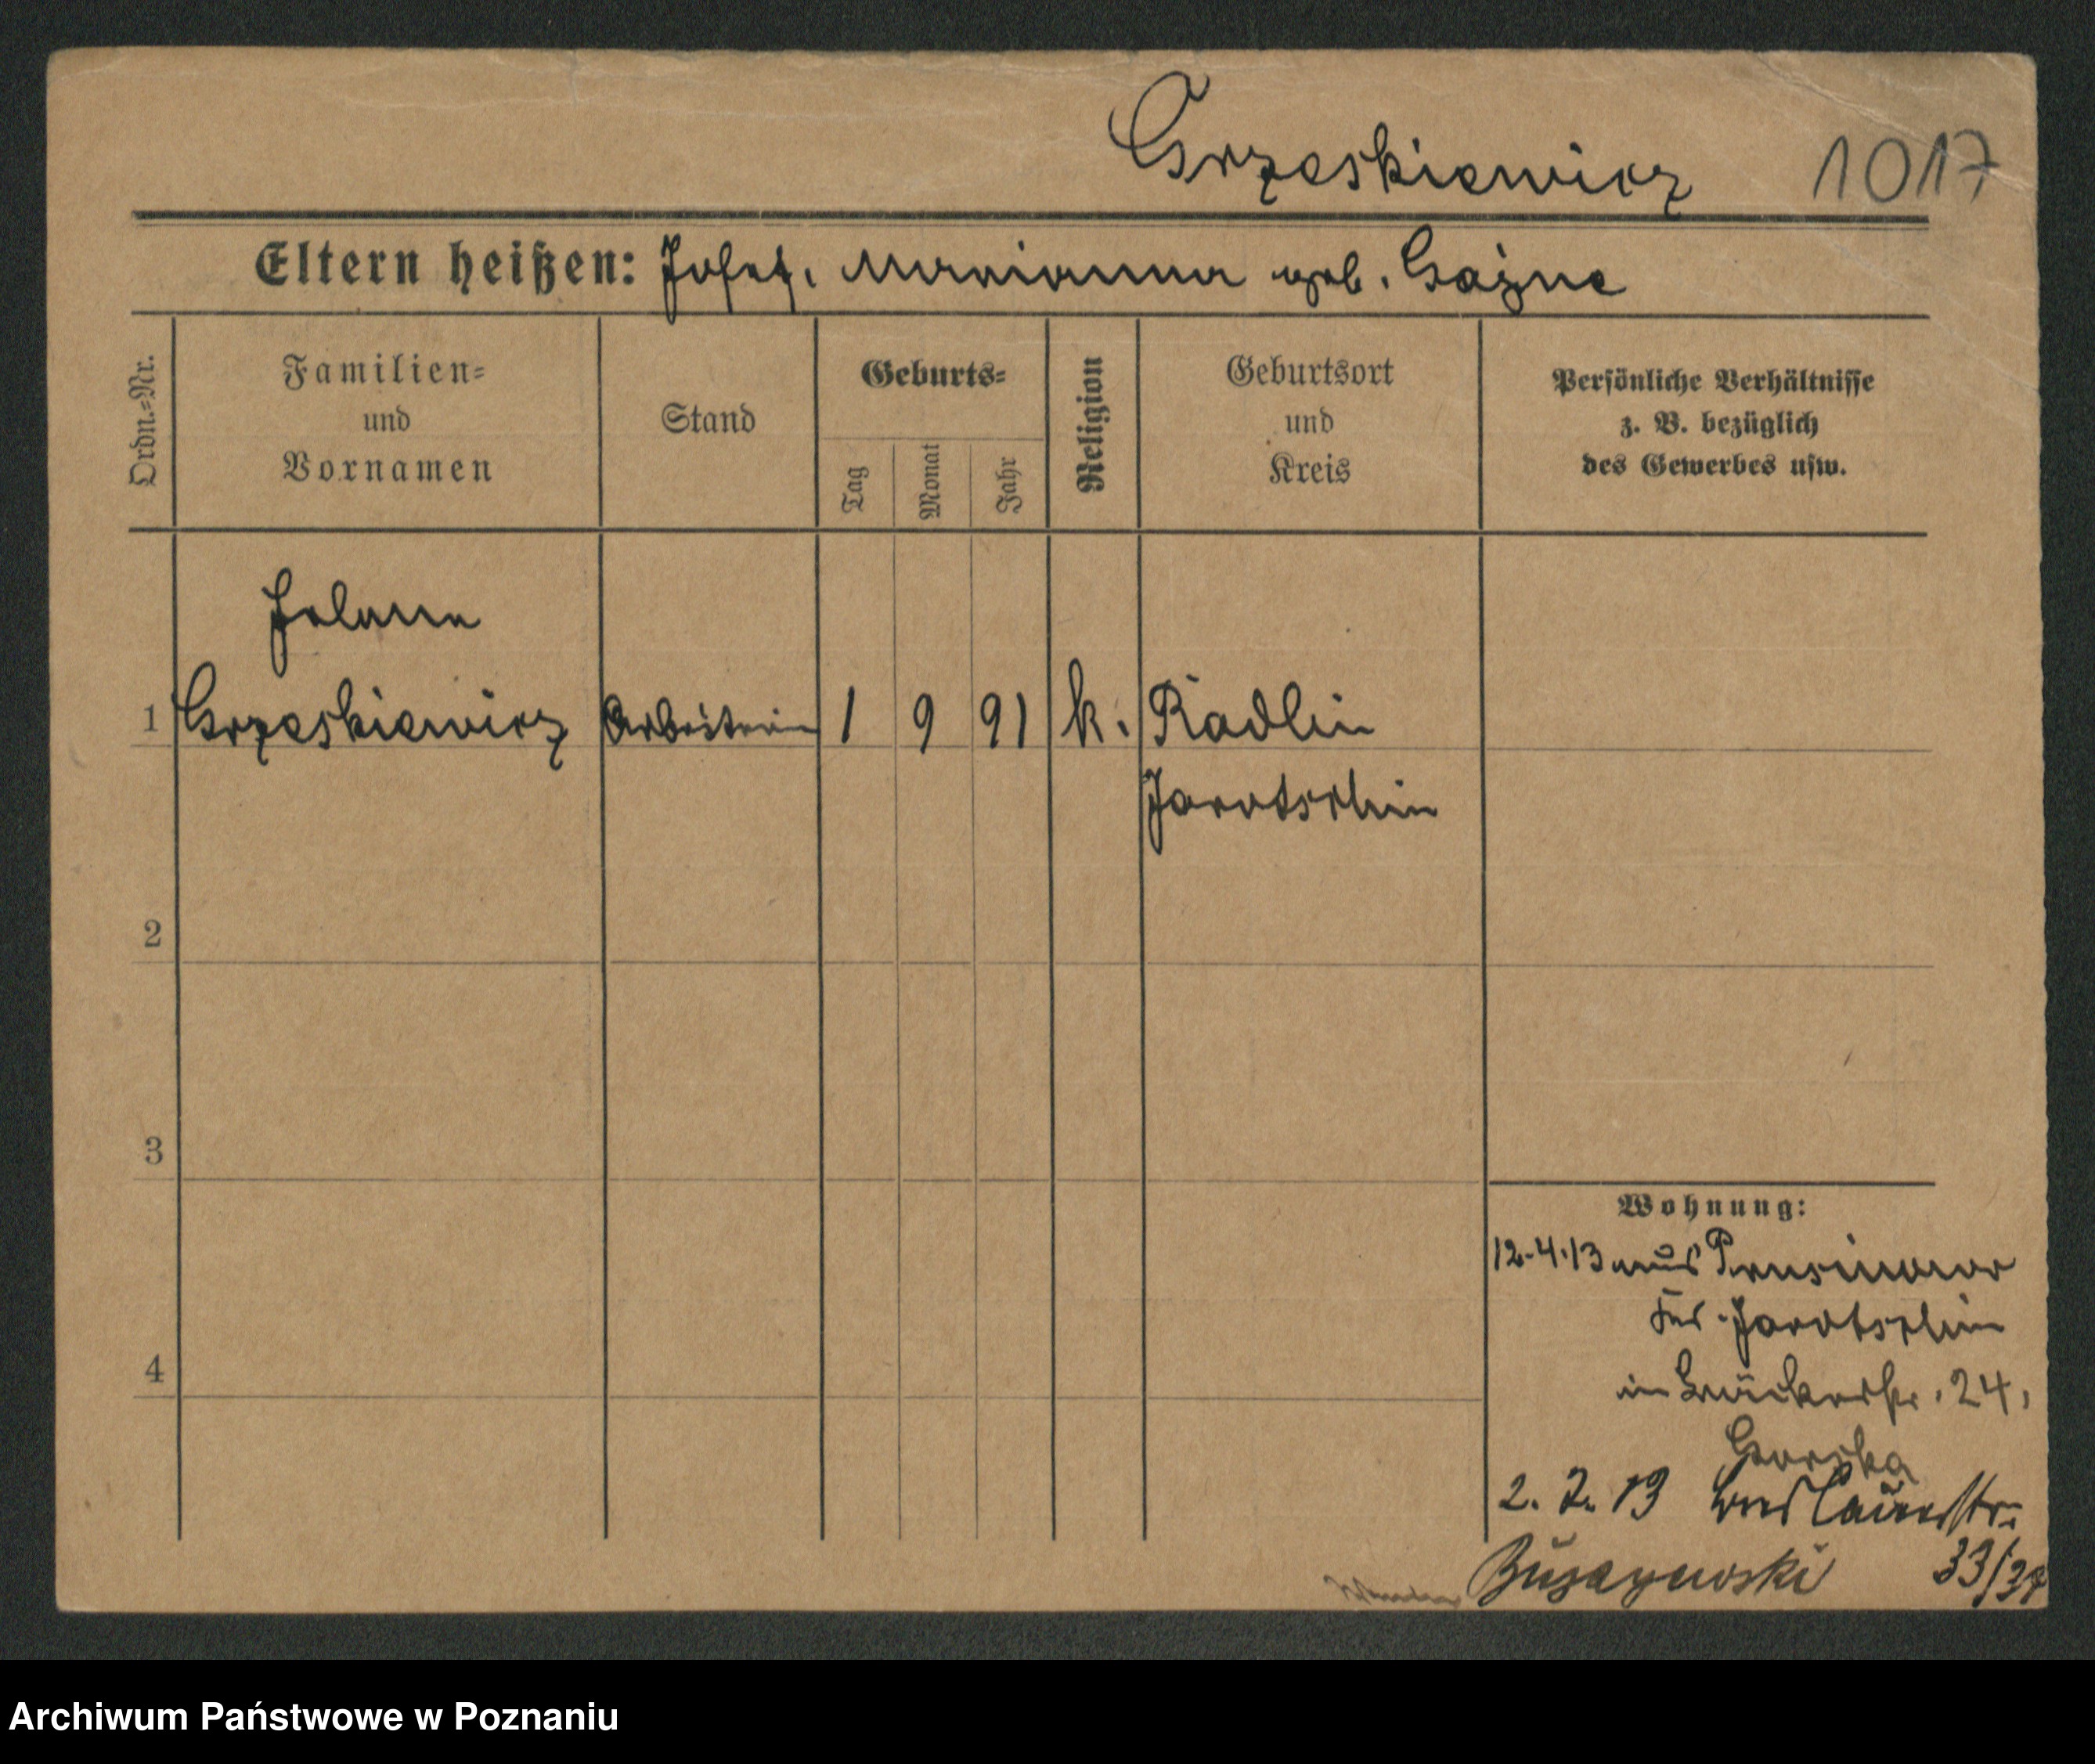 Grzeskiewicz 1017
Eltern heißen: Josef, Marianna geb. Gazne
Ordn.=Nr.
Familien=
und
Vornamen
Stand
Geburts=
Tag
Monat
Jahr
Religion
Geburtsort
und
Kreis
Persönliche Verhältnisse
z. B. bezüglich
des Gewerbes usw.
1 Grzeskiewicz Arbeiterin 1 9 91 k. Radlin
Jarotschin
2
3
4
Wohnung:
12.4.13 aus
Krs. Jarotschin
in Bäckerstr. 24,
Gorska
2. 7. 13
33/34
Archiwum Państwowe w Poznaniu